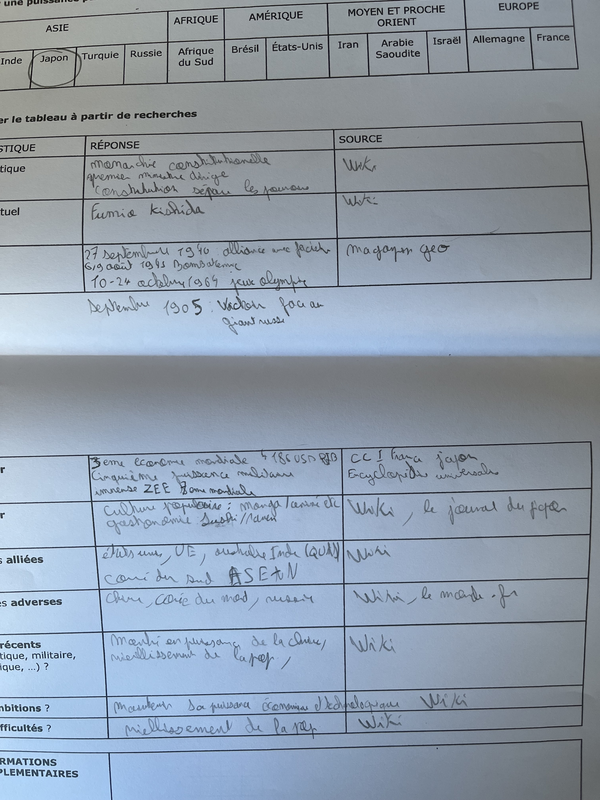 une puissance
ASIE AFRIQUE AMÉRIQUE MOYEN ET PROCHE ORIENT EUROPE
Inde Japon Turquie Russie Afrique du Sud Brésil États-Unis Iran Arabie Saoudite Israël Allemagne France
er le tableau à partir de recherches
STIQUE RÉPONSE SOURCE
tique monarchie constitutionelle Wiki
premier ministre dirige
constitution sépare les pouvoirs
tuel Fumio Kishida Wiki
27 septembre 1940 alliance avec magazin geo
6,9 août 1945
10-24 octobre 1964 jeux olympi
Septembre 1905 : face au
giant russe
3eme economie mondiale 4 186 USD PIB CCI France japon
Cinquième puissance militaire Encyclopédie universalis
immense ZEE 8eme mondiale
culture populaire : manga/animé etc Wiki, le journal du japon
gastronomie sushi/ramen
s alliées états unis, UE, australie Inde (QUAD) Wiki
corée du sud ASEAN
es adverses Chine, Corée du nord, russie Wiki, le monde.fr
récents Montée en puissance de la chine, Wiki
tique, militaire, vieillissement de la pop,
ique, ...) ?
mbitions ? Maintenir sa puissance économique et technologique Wiki
fficultés ? vieillissement de la pop Wiki
RMATIONS
PLEMENTAIRES